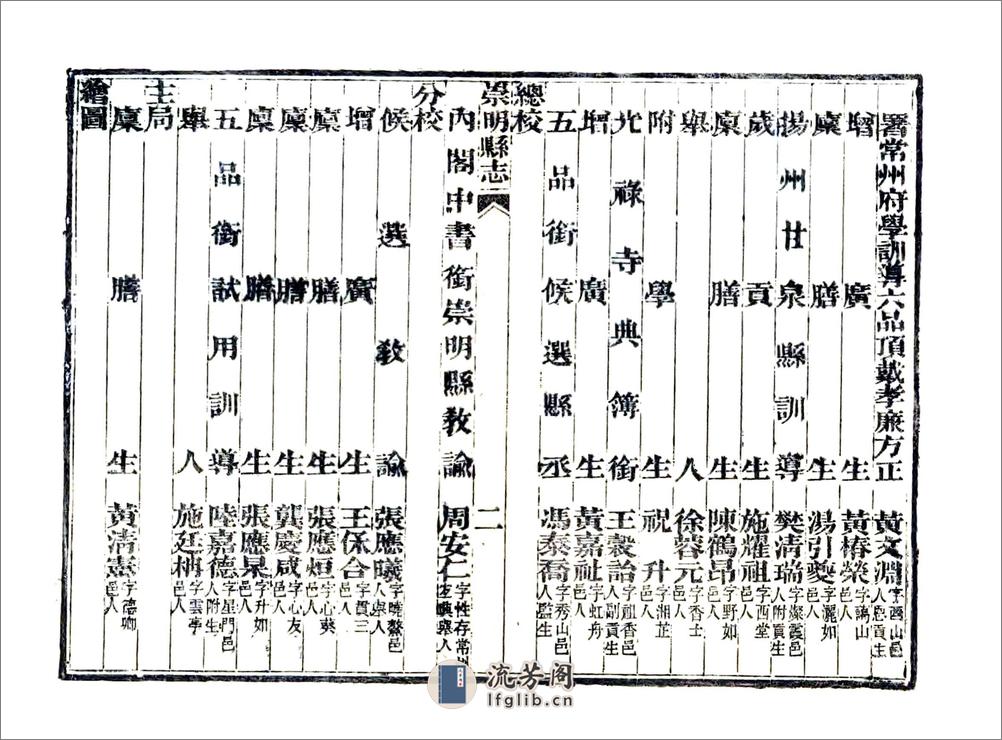 署常州府學訓導六品頂戴孝廉方正黃文淵字酉山邑人恩貢生
增廣生黃椿榮字謁山邑人
廩膳生湯引夔字灑如邑人
揚州甘泉縣訓導樊清瑞字燦霞邑人附貢生
歲貢生施耀祖字西堂邑人
廩膳生陳鶴昂字野如邑人
舉人徐蓉元字香士邑人
附學生祝升字湘芷邑人
光祿寺典簿銜王穀詒字祖香邑人副貢生
增廣生黃嘉祉字虹舟邑人
五品銜候選縣丞馮泰喬字秀山邑人監生
總校
崇明縣志 二
內閣中書銜崇明縣教諭周安仁字性存常州舉人
分校
候選教諭張應曦字曉鰲邑人舉人
增廣生王保合字貫三邑人
廩膳生張應烜字心葵邑人
廩膳生龔慶咸字心友邑人
廩膳生張應杲字升如邑人
五品銜試用訓導陸嘉德字星門邑人附生
舉人施廷柟字雲亭邑人
主局
廩膳生黃清憲字德卿邑人
繪圖
流芳阁
lfglib.cn